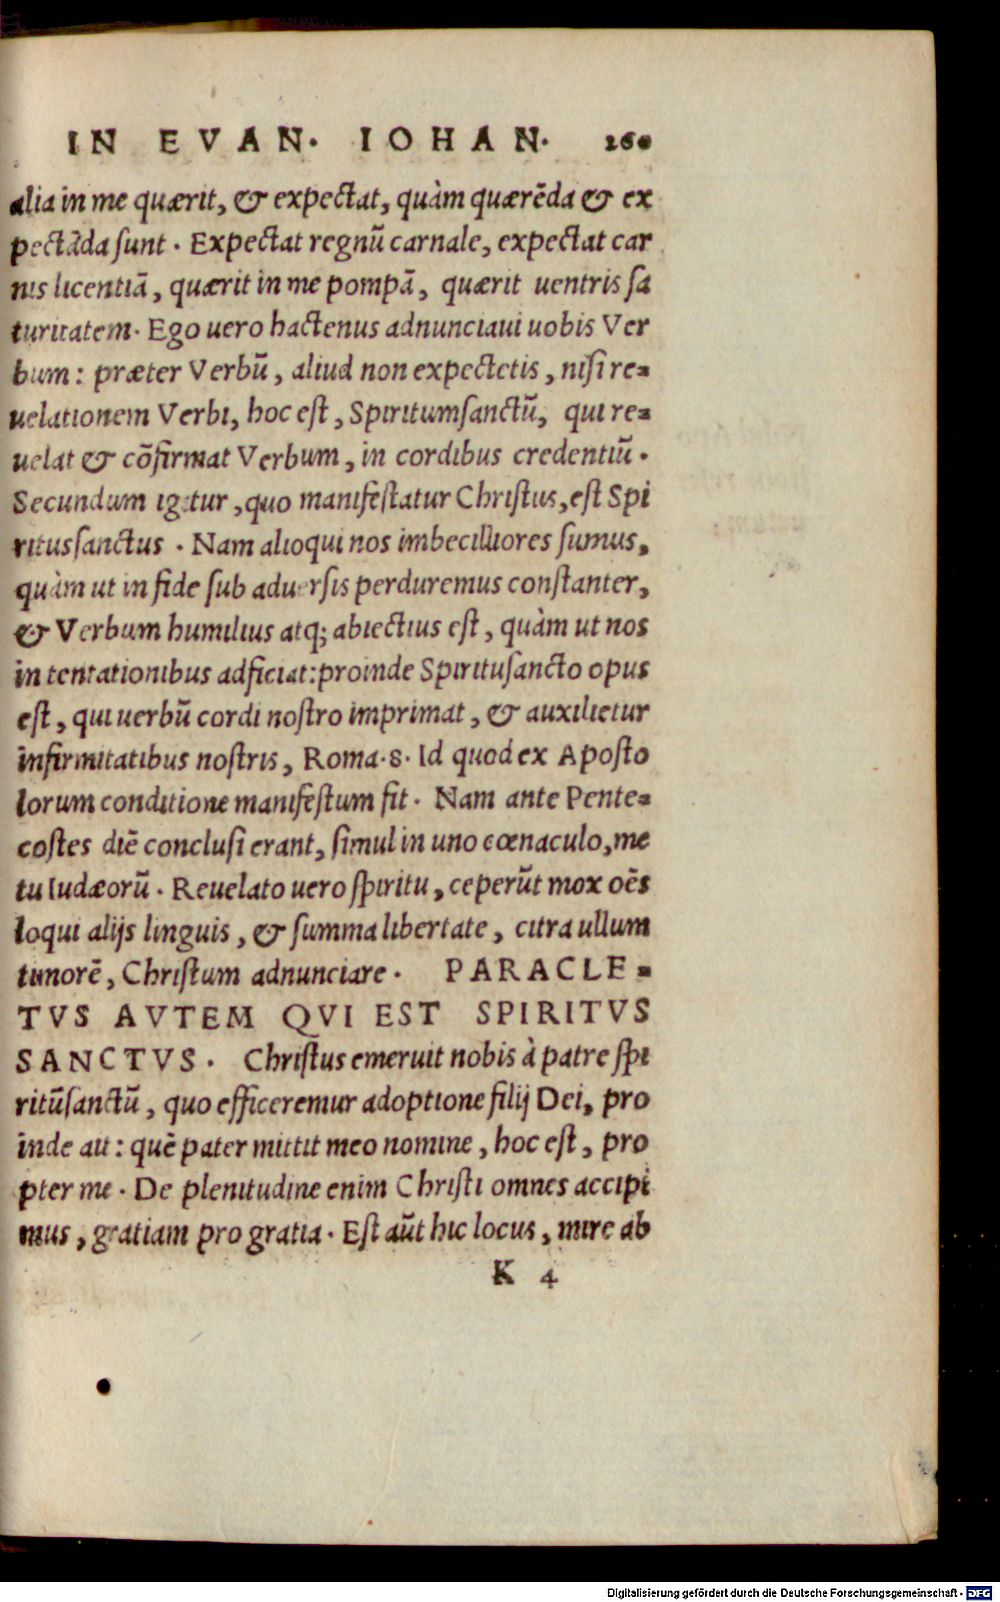 IN EVAN. IOHAN. 260
alia in me quærit, & expectat, quàm quærẽda & ex
pectãda sunt. Expectat regnũ carnale, expectat car
nis licentiã, quærit in me pompã, quærit uentris sa
turitatem. Ego uero hactenus adnunciaui uobis Ver
bum: præter Verbũ, aliud non expectetis, nisi re-
uelationem Verbi, hoc est, Spiritumsanctũ, qui re-
uelat & cõfirmat Verbum, in cordibus credentiũ.
Secundum igitur, quo manifestatur Christus, est Spi
ritussanctus. Nam alioqui nos imbecilliores sumus,
quàm ut in fide sub aduersis perduremus constanter,
& Verbum humilius atq; abiectius est, quàm ut nos
in tentationibus adficiat: proinde Spiritusancto opus
est, qui uerbũ cordi nostro imprimat, & auxilietur
infirmitatibus nostris, Roma. 8. Id quod ex Aposto
lorum conditione manifestum fit. Nam ante Pente-
costes diẽ conclusi erant, simul in uno cœnaculo, me
tu Iudæorũ. Reuelato uero spiritu, ceperũt mox oẽs
loqui alijs linguis, & summa libertate, citra ullum
timorẽ, Christum adnunciare. PARACLE-
TVS AVTEM QVI EST SPIRITVS
SANCTVS. Christus emeruit nobis à patre spi
ritũsanctũ, quo efficeremur adoptione filij Dei, pro
inde ait: quẽ pater mittit meo nomine, hoc est, pro
pter me. De plenitudine enim Christi omnes accipi
mus, gratiam pro gratia. Est aũt hic locus, mire ab
K 4
Digitalisierung gefördert durch die Deutsche Forschungsgemeinschaft - DFG